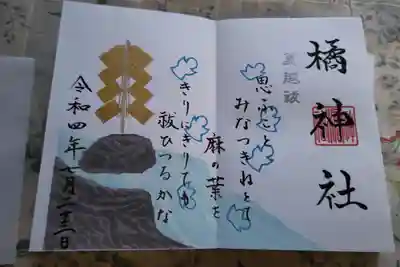 橘神社
夏越祓
思ふこと
みなつきねとて
麻の葉を
きりにきりても
祓ひつるかな
令和四年七月